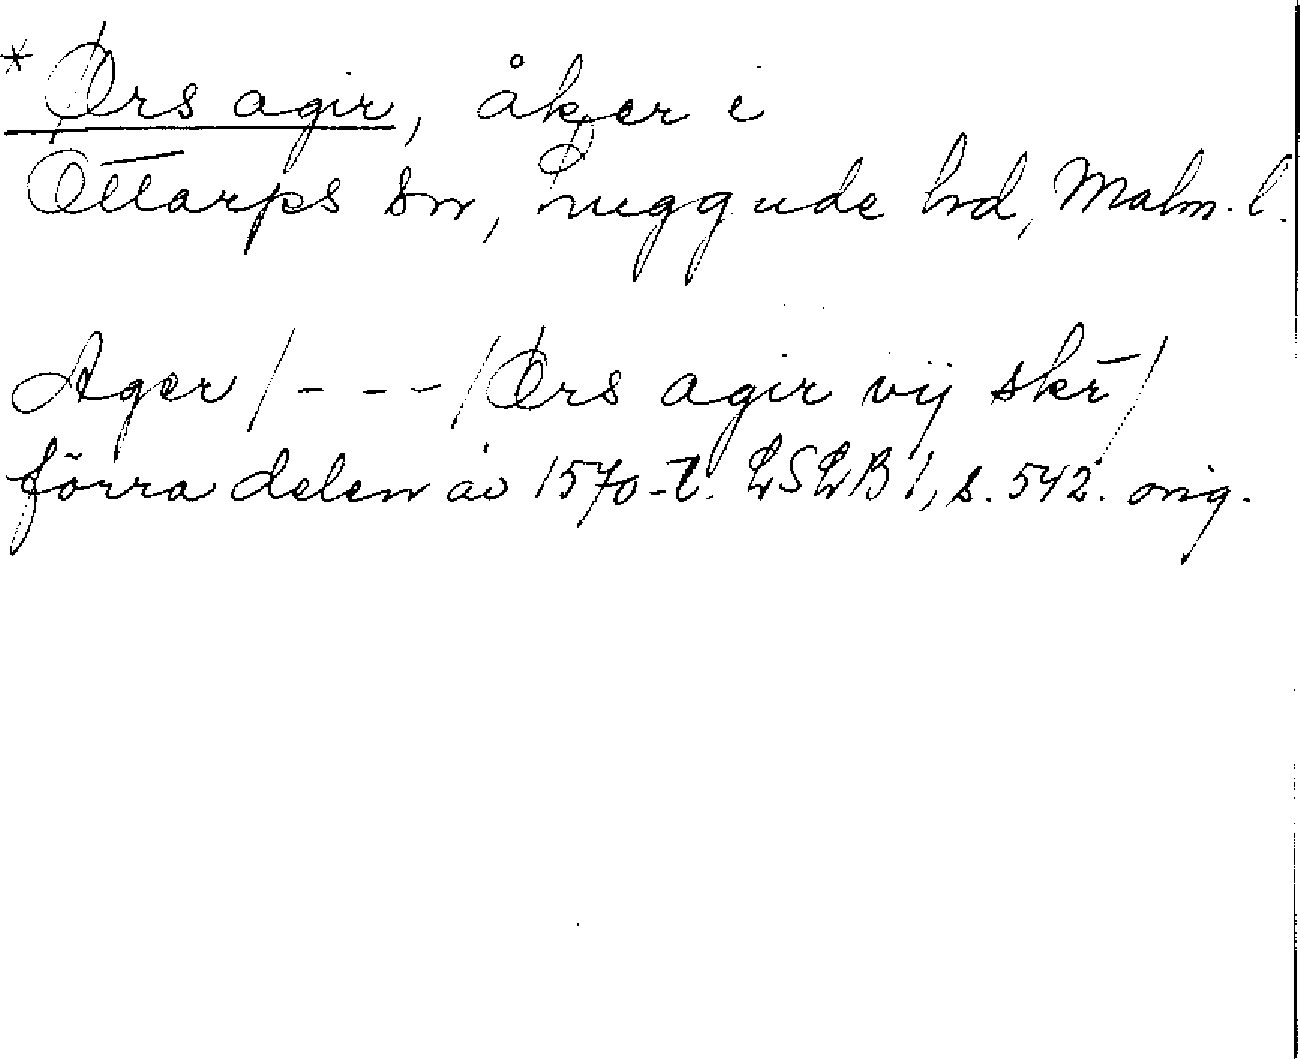 * Ørs agir, åker i
Ottarps sn, Luggude hd, Malm. l.
Ager / - - - / Ørs agir vij skr̄ /
förra delen av 1570-t. LSLB 1, s. 542. orig.